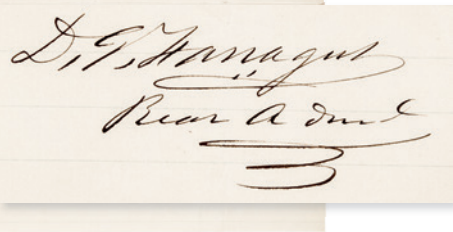 D. G. Farragut
Rear Adml